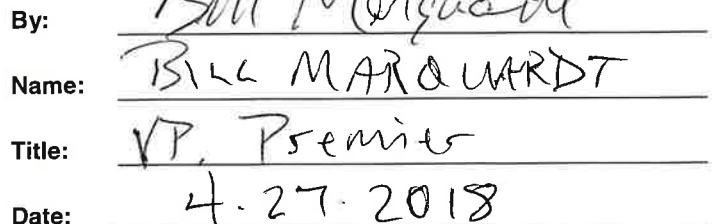 By: Bill Marquardt
Name: BILL MARQUARDT
Title: VP. Premier
Date: 4.27.2018